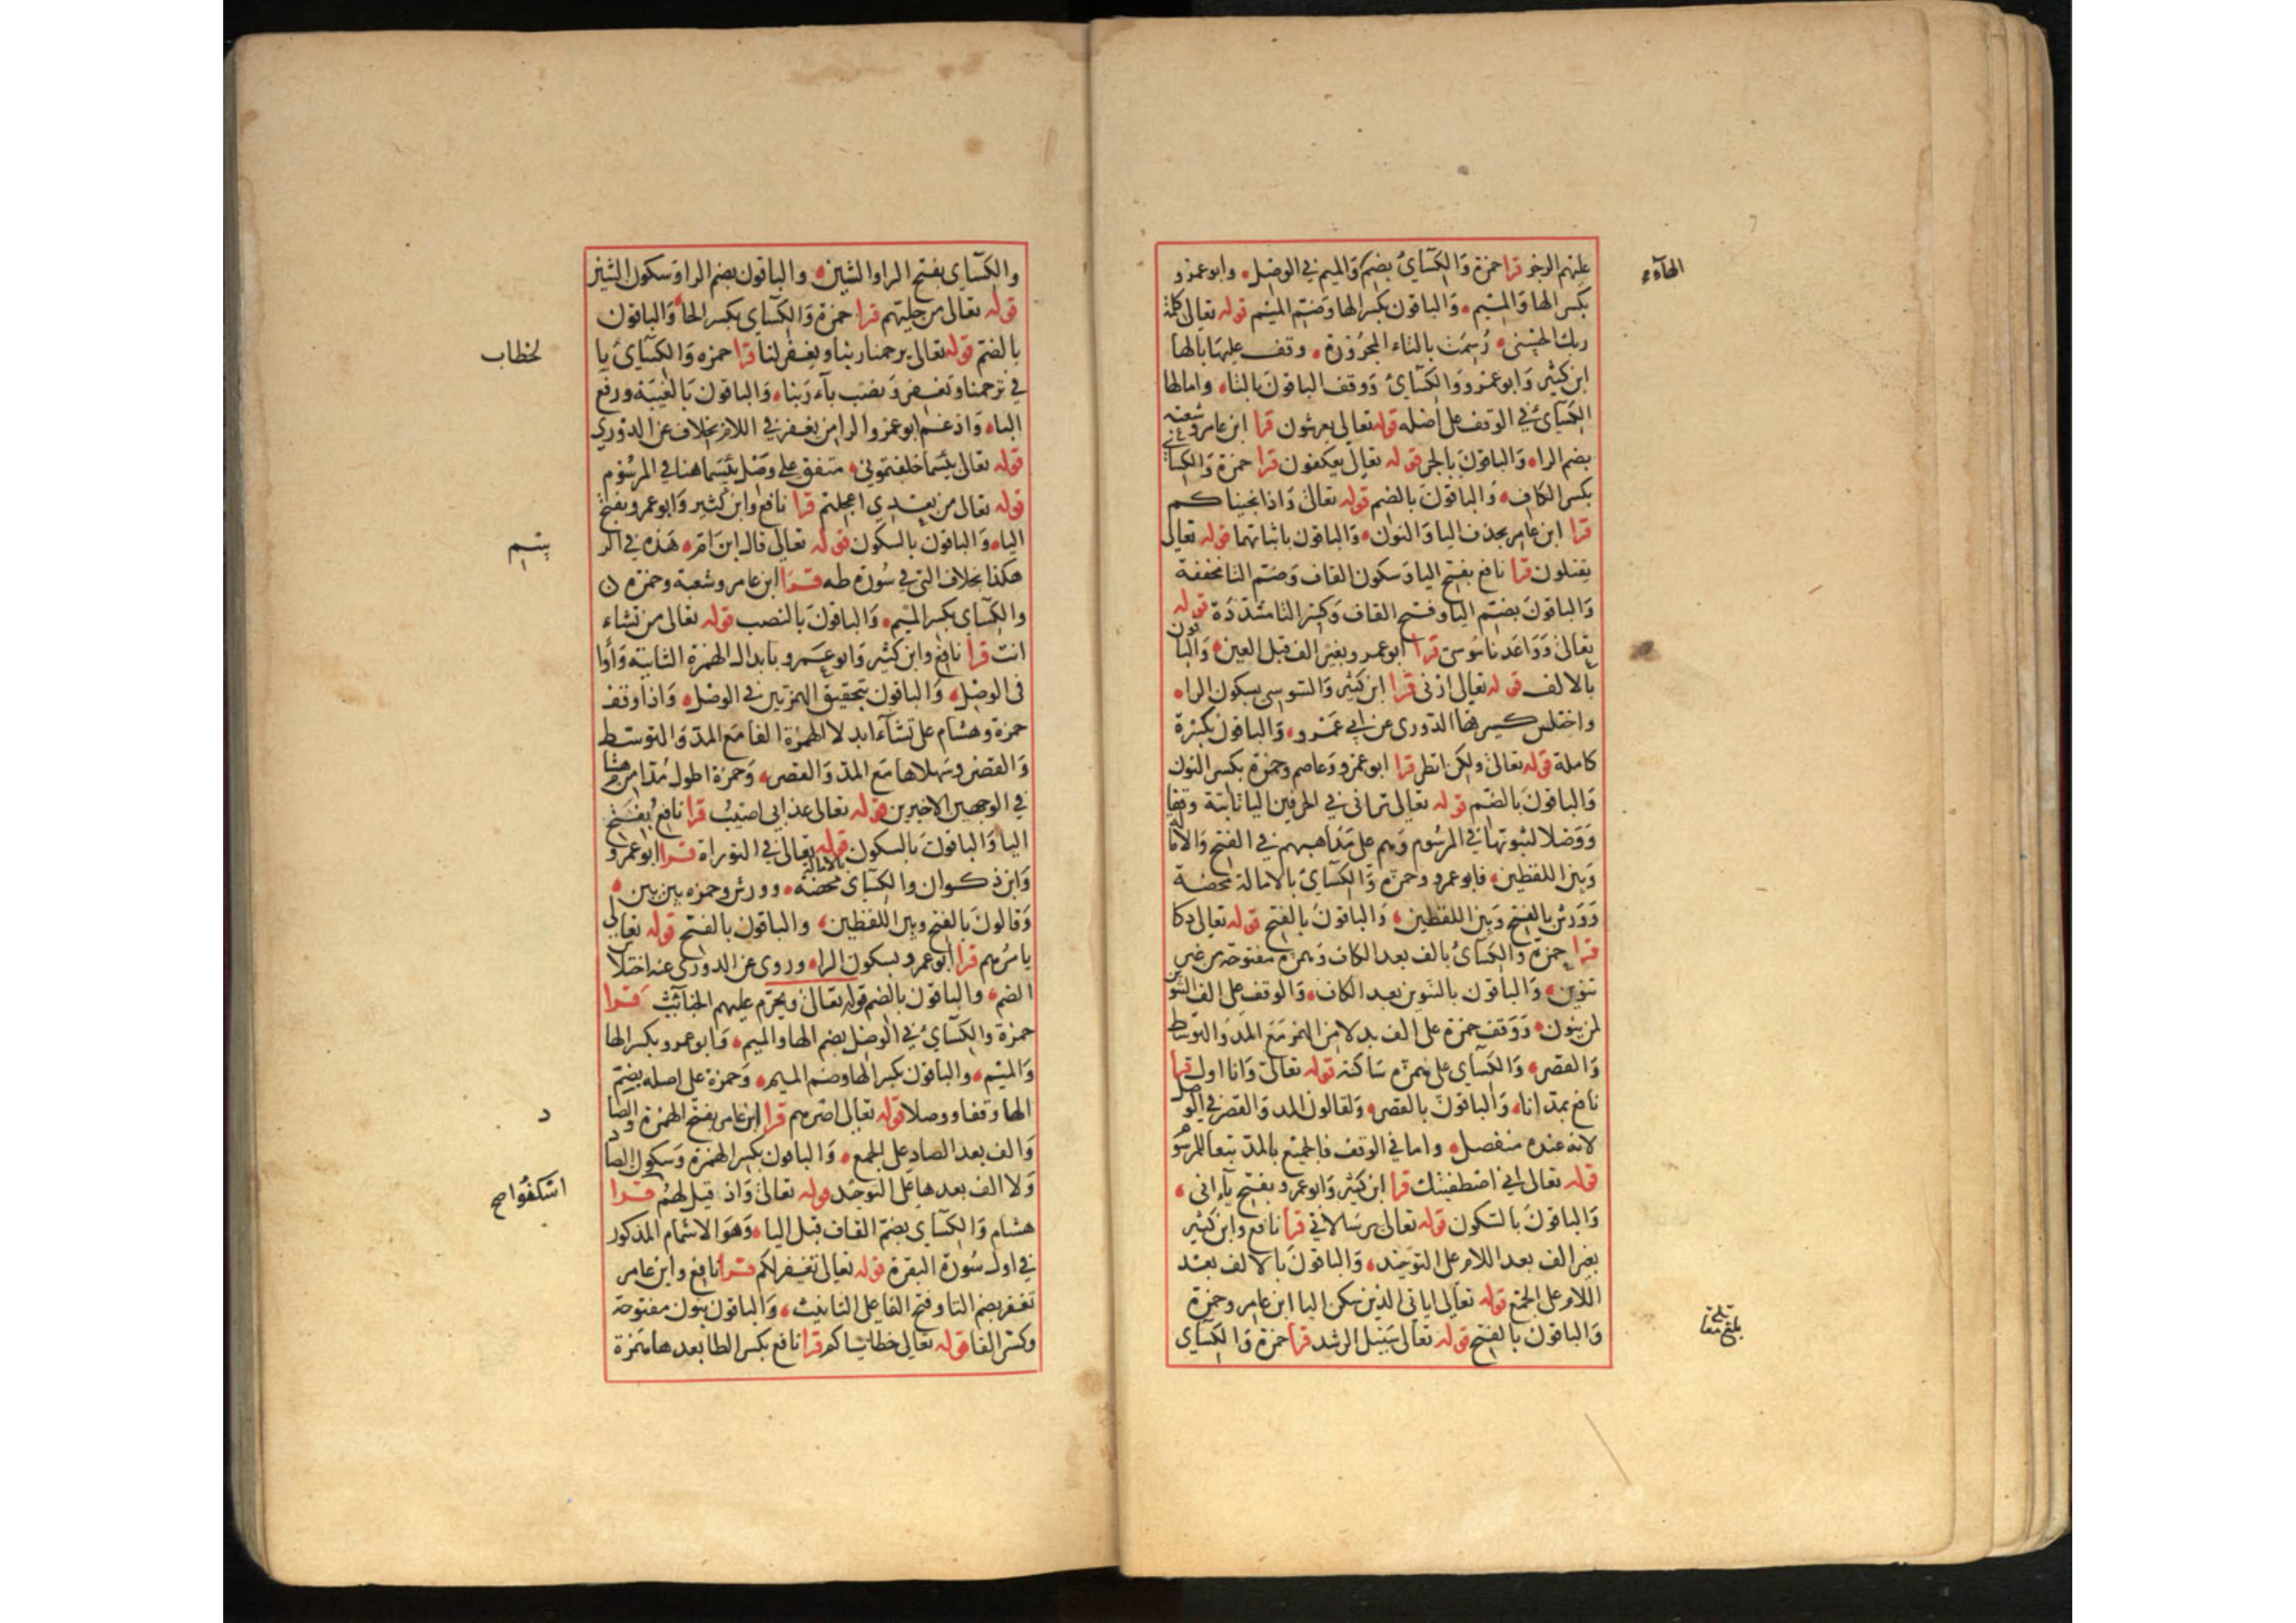 عليهم الرجز قرا حمزة والكسائ بضم والميم في الوصل وابوعمرو
الهآء
بكسر الها والميم والباقون بكسر الها وضم الميم قوله تعالى كلمة
ربك الحسنى رسمت بالتاء المجرورة وقف عليها بالها
ابن كثير وابو عمرو والكسائ ووقف الباقون بالتاء وامالها
الكسائ في الوقف على اصله قوله تعالى يعرشون قرا ابن عامر وشعبة
بضم الراء والباقون بالجر قوله تعالى يعكفون قرا حمزة والكسائ
بكسر الكاف والباقون بالضم قوله تعالى واذ انجيناكم
قرا ابن عامر بحذف اليا والنون والباقون باثباتهما قوله تعالى
يقتلون قرا نافع بفتح اليا وسكون القاف وضم التا مخففة
والباقون بضم اليا وفتح القاف وكسر التا مشددة قوله
تعالى وواعدنا موسى قرا ابو عمرو بغير الف قبل العين والباقون
بالالف قوله تعالى ارنى قرا ابن كثير والسوسى بسكون الراء
واختلس كسرتها الدورى عن ابي عمرو والباقون بكسرة
كاملة قوله تعالى ولكن انظر قرا ابو عمرو وعاصم وحمزة بكسر النون
والباقون بالضم قوله تعالى تراني في الحرفين اليا ثابتة وقفا
ووصلا لثبوتها في المرسوم وهم على مذاهبهم في الفتح والامالة
وبين اللفظين فابو عمرو وحمزة والكسائ بالامالة محضة
وورش بالفتح وبين اللفظين والباقون بالفتح قوله تعالى دكا
قرا حمزة والكسائ بالف بعد الكاف وهمزة مفتوحة من غير
تنوين والباقون بالتنوين بعد الكاف والوقف على الف التنوين
لمن ينون ووقف حمزة على الف بدلا من الهمز مع المد والتوسط
والقصر والكسائ على همزة ساكنة قوله تعالى وانا اول قرا
نافع بمد انا والباقون بالقصر ولقالون المد والقصر في الوصل
لانه عنده منفصل واما في الوقف فالجميع بالمد تبعا للمرسوم
قوله تعالى اني اصطفيتك قرا ابن كثير وابو عمرو بفتح ياء اني
والباقون بالسكون قوله تعالى برسالاتي قرا نافع وابن كثير
بغير الف بعد اللام على التوحيد والباقون بالالف بعد
اللام على الجمع قوله تعالى اياتي الذين سكن اليا ابن عامر وحمزة
والباقون بالفتح قوله تعالى سبيل الرشد قرا حمزة والكسائ
والكسآي بفتح الرا والشين والباقون بضم الرا وسكون الشين
قوله تعالى من حليهم قرا حمزة والكسآي بكسر الحا والباقون
بالضم قوله تعالى يرحمنا ربنا ويغفر لنا قرا حمزه والكسآئ با
لخطاب
في ترحمنا وتغفر ونصب بآء ربنا والباقون بالغيبة ورفع
الباء وادغم ابو عمرو الرا من يغفر في اللام بخلاف عن الدوري
قوله تعالى بئسما خلفتموني متفق على وصل بئسما هنا في المرسوم
قوله تعالى من بعدي اعجلتم قرا نافع وابن كثير وابو عمرو بفتح
الياء والباقون بالسكون قوله تعالى قال ابن ام هذه في الر
هكذا بخلاف التي في سورة طه قرا ابن عامر وشعبة وحمزه
والكسآي بكسر الميم والباقون بالنصب قوله تعالى من تشاء
انت قرا نافع وابن كثير وابو عمرو بابدال الهمزة الثانية واوا
في الوصل والباقون بتحقيق الهمزتين في الوصل واذا وقف
حمزة وهشام على تشآء ابدلا الهمزة الفا مع المد والتوسط
والقصر وسهلاها مع المد والقصر وحمزة اطول مدا من هشام
في الوجهين الاخيرين قوله تعالى عذابي اصيب قرا نافع بفتح
اليا والباقون بالسكون قوله تعالى في التوراة قرا ابو عمرو
وابن ذكوان والكسآي بالامالة محضة وورش وحمزه بين بين
وقالون بالفتح وبين اللفظين والباقون بالفتح قوله تعالى
يامرهم قرا ابو عمرو بسكون الراء وروى عن الدورى عنه اختلاس
الضم والباقون بالضم قوله تعالى ويحرم عليهم الخبآئث قرا
حمزة والكسآئ في الوصل بضم الها والميم وابو عمرو بكسر الها
والميم والباقون بكسر الها وضم الميم وحمزة على اصله بضم
الها وقفا ووصلا قوله تعالى اصرهم قرا ابن عامر بفتح الهمزة والصاد
والف بعد الصاد على الجمع والباقون بكسر الهمزة وسكون الصاد
ولا الف بعدها على التوحيد قوله تعالى واذ قيل لهم قرا
هشام والكسآي بضم القاف قبل الياء وهو الاشمام المذكور
في اول سورة البقرة قوله تعالى نغفر لكم قرا نافع وابن عامر
تغفر بضم التا وفتح الفا على التانيث والباقون بنون مفتوحة
وكسر الفا قوله تعالى خطاياكم قرا نافع بكسر الطا بعدها همزة